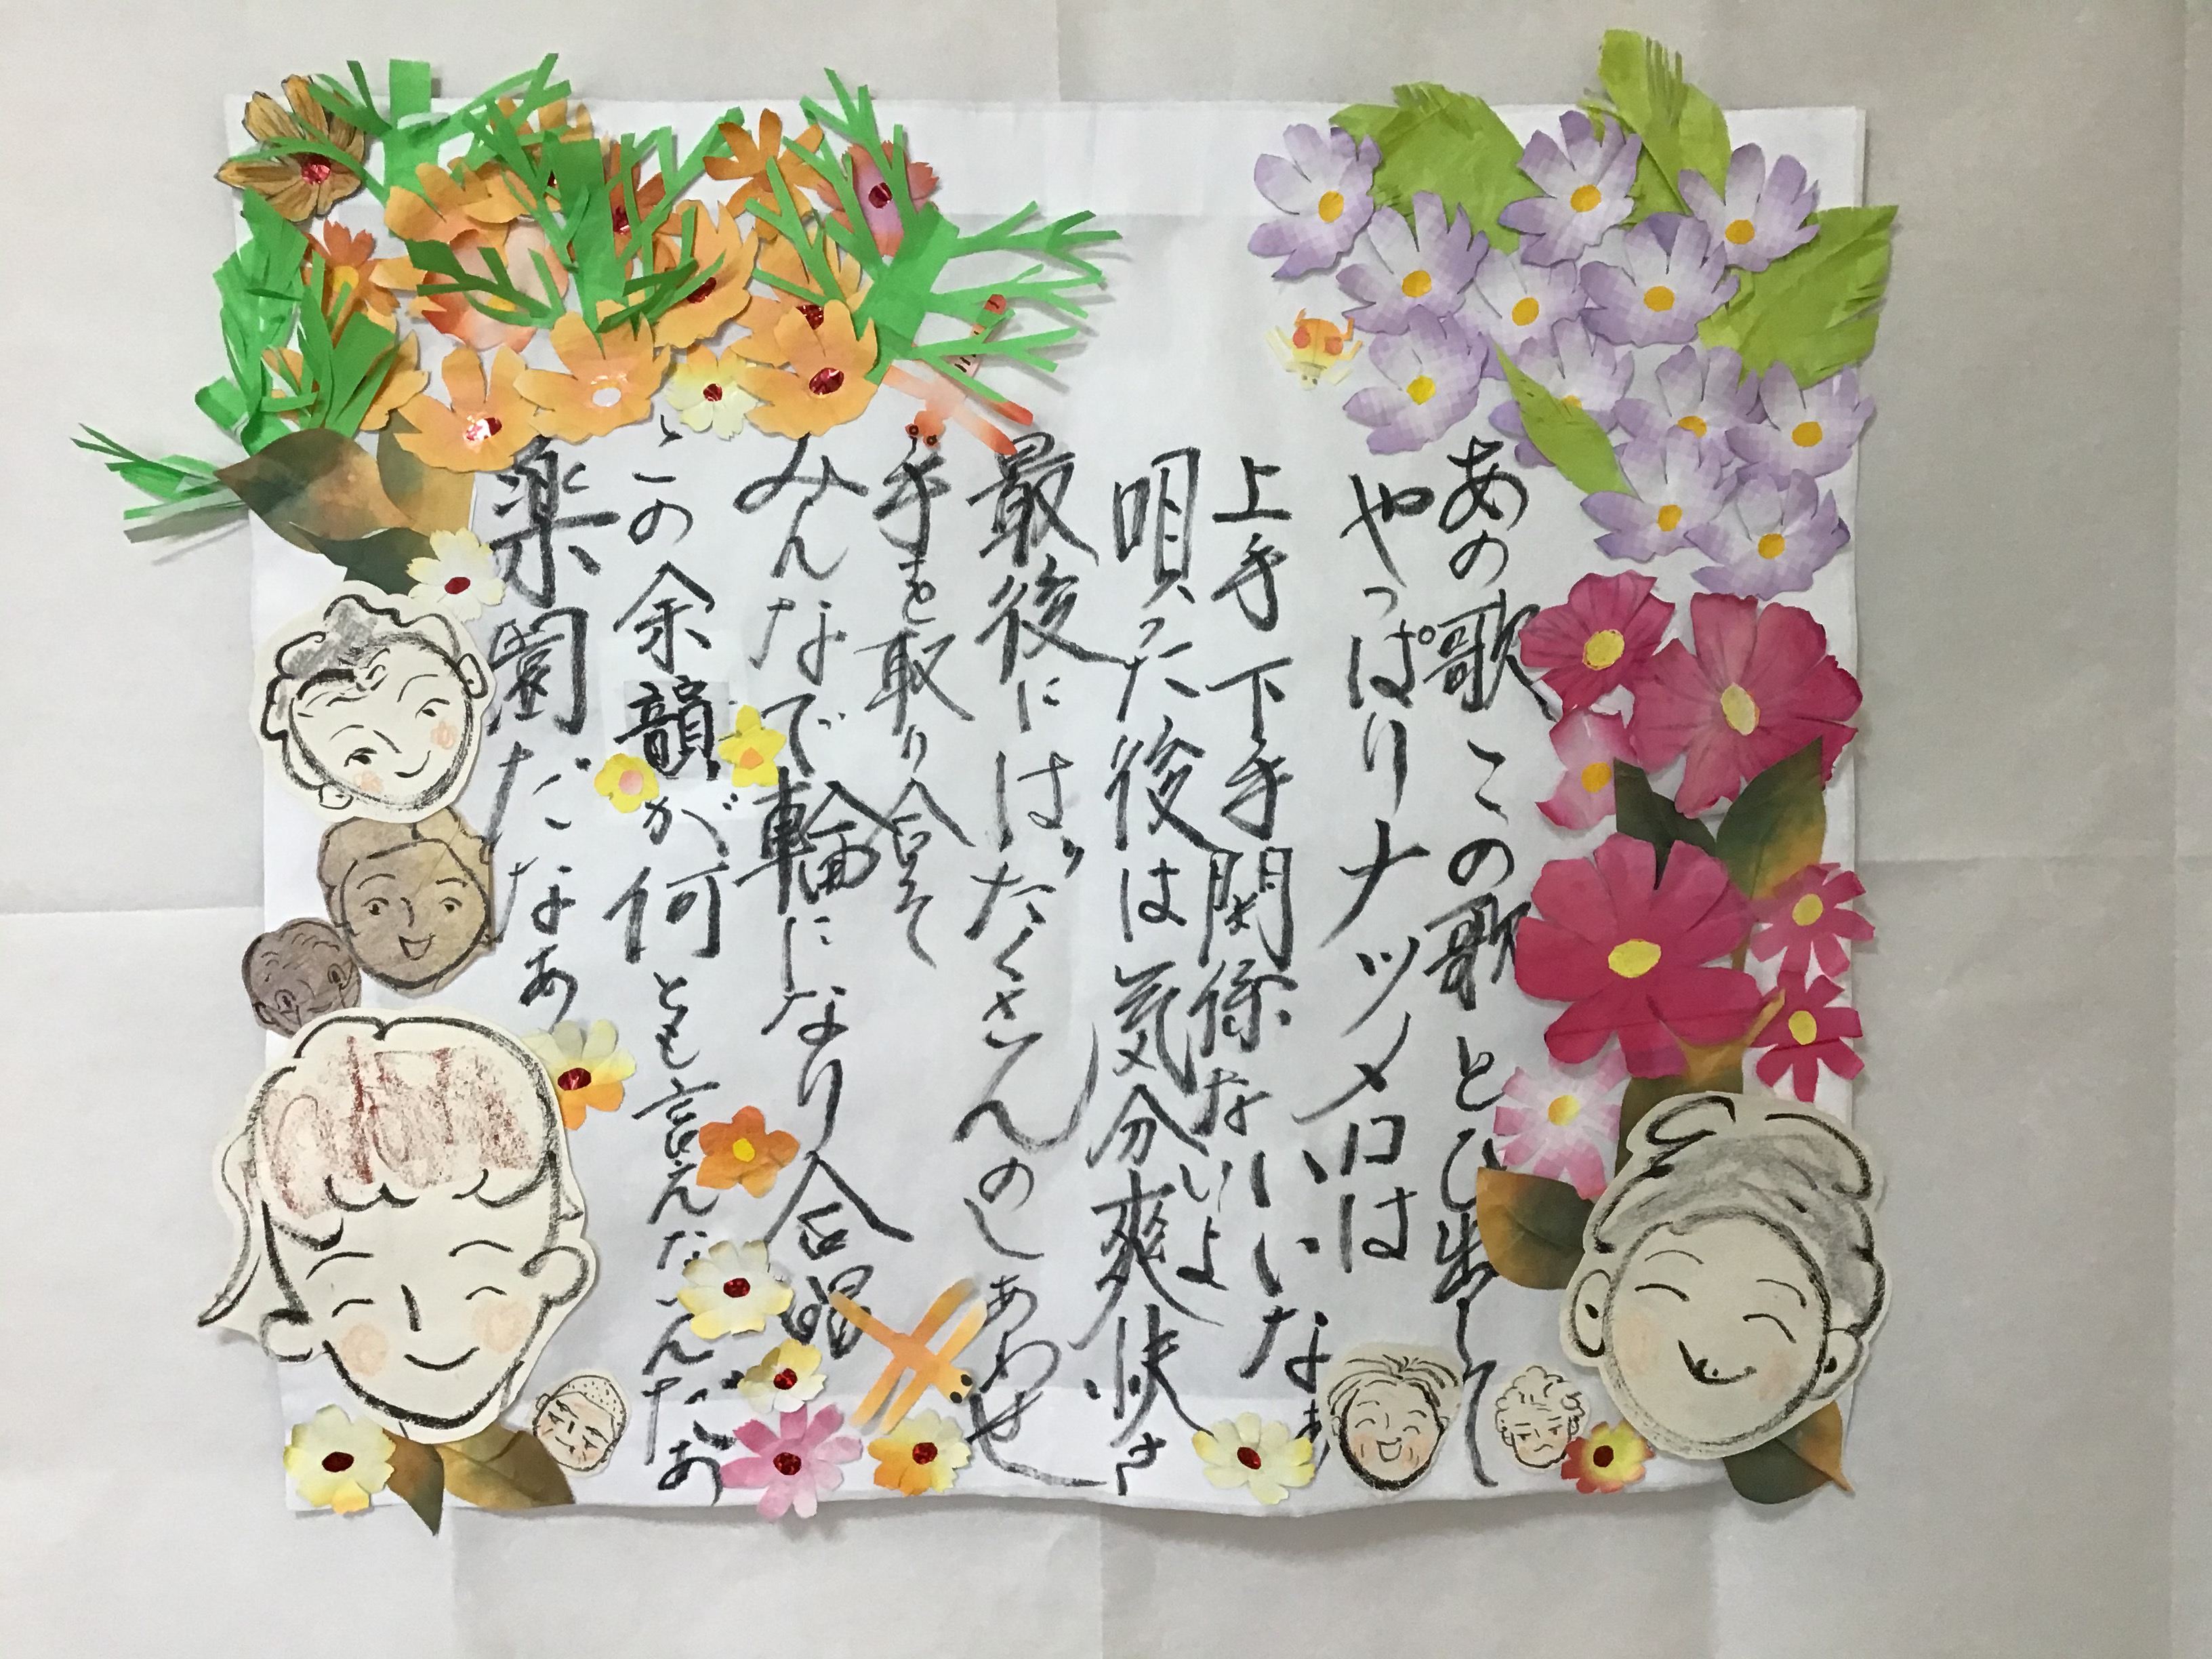 あの歌この歌とび出して
やっぱりナツメロは
いいなぁ
上手下手関係ないよ
唄った後は気分爽快さ
最後にはだくさんのしあわせ
手を取り合って
みんなで輪になり合唱
この余韻が何とも言えないんだなあ
楽園だなあ